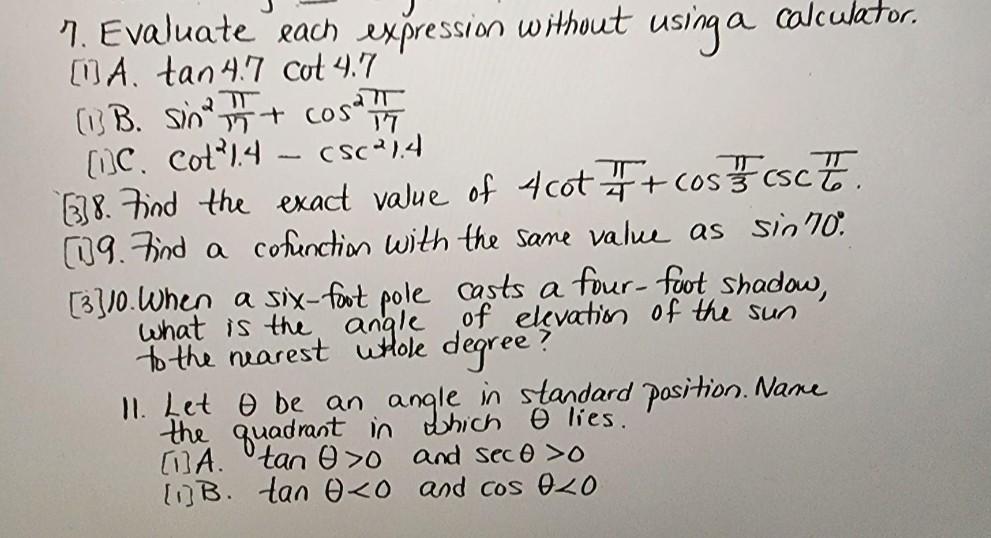 7. Evaluate each expression without using a calculator.
[1] A. tan 4.7 cot 4.7
[1] B. sin² π/17 + cos² π/17
[1] C. cot² 1.4 – csc² 1.4
[3] 8. Find the exact value of 4 cot π/4 + cos π/3 csc π/6.
[1] 9. Find a cofunction with the same value as sin 70°.
[3] 10. When a six-foot pole casts a four-foot shadow,
what is the angle of elevation of the sun
to the nearest whole degree?
11. Let θ be an angle in standard position. Name
the quadrant in which θ lies.
[1] A. tan θ > 0 and sec θ > 0
[1] B. tan θ < 0 and cos θ < 0